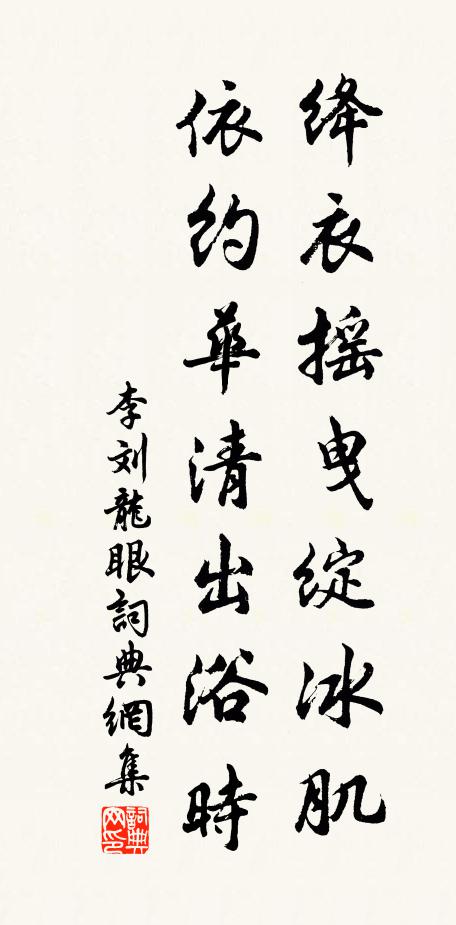 绛衣摇曳绽冰肌
依约華清出浴時
李刘龍眼詞典網集
詞典
网印